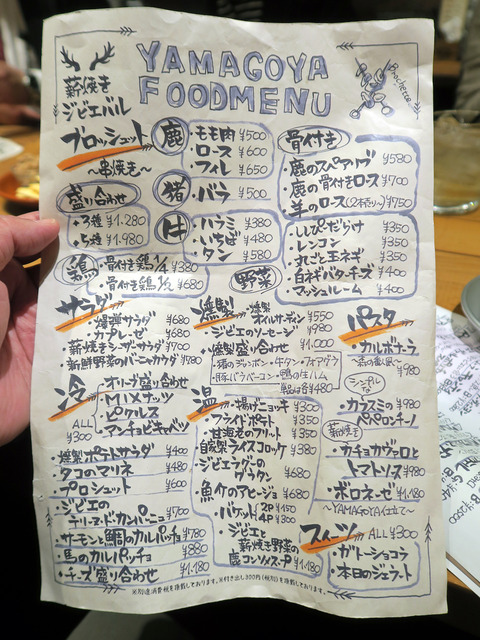 YAMAGOYA
FOODMENU
薪焼き
ジビエバル
Brochettes
ブロシェット
〜串焼き〜
盛り合わせ
・3種 ¥1.280
・5種 ¥1.980
鹿
・もも肉 ¥500
・ロース ¥600
・フィレ ¥650
猪
・バラ ¥500
牛
・ハラミ ¥380
・いちぼ ¥480
・タン ¥580
鶏
・骨付き鶏1/4 ¥380
・骨付き鶏1/2 ¥680
骨付き
・鹿のスペアリブ ¥580
・鹿の骨付きロース ¥700
・羊のロース(2本〜) ¥750
野菜
・ししとうだらけ ¥350
・レンコン ¥350
・丸ごと玉ネギ ¥350
・白ネギバターチーズ ¥400
・マッシュルーム ¥400
サラダ
・爆弾サラダ ¥680
・カプレーゼ ¥680
・薪焼きシーザーサラダ ¥700
・新鮮野菜のバーニャカウダ ¥780
燻製
・燻製オイルサーディン ¥550
・ジビエのソーセージ ¥980
・燻製盛り合わせ ¥1.000
・猪のジャンボン・牛タン・フォアグラ
・豚バラベーコン・鴨の生ハム
単品は各¥480
パスタ
・カルボナーラ
¥980
・カラスミの
ペペロンチーノ ¥980
薪焼き
・カチョカヴァロと
トマトソース ¥980
・ボロネーゼ ¥1.180
〜YAMAGOYA仕立て〜
冷
・オリーブ盛り合わせ
・MIXナッツ
・ピクルス
・アンチョビキャベツ
ALL
¥300
・燻製ポテトサラダ ¥400
・タコのマリネ ¥480
・プロシュット ¥600
・ジビエの
テリーヌ・ド・カンパーニュ ¥700
・サーモンと鯛のカルパッチョ ¥780
・馬のカルパッチョ ¥880
・チーズ盛り合わせ ¥1.180
温
・揚げニョッキ ¥300
・フライドポテト ¥350
・甘海老のフリット ¥350
・自家製ライスコロッケ ¥380
・ジビエラグーの
グラタン ¥680
・魚介のアヒージョ ¥680
・バゲット 2P ¥150
4P ¥300
・ジビエと
薪焼き野菜の
鹿コンソメスープ ¥1.180
スイーツ ALL ¥300
・ガトーショコラ
・本日のジェラート
※別途消費税を頂戴しております。※付き出し300円(税別)を頂戴しております。